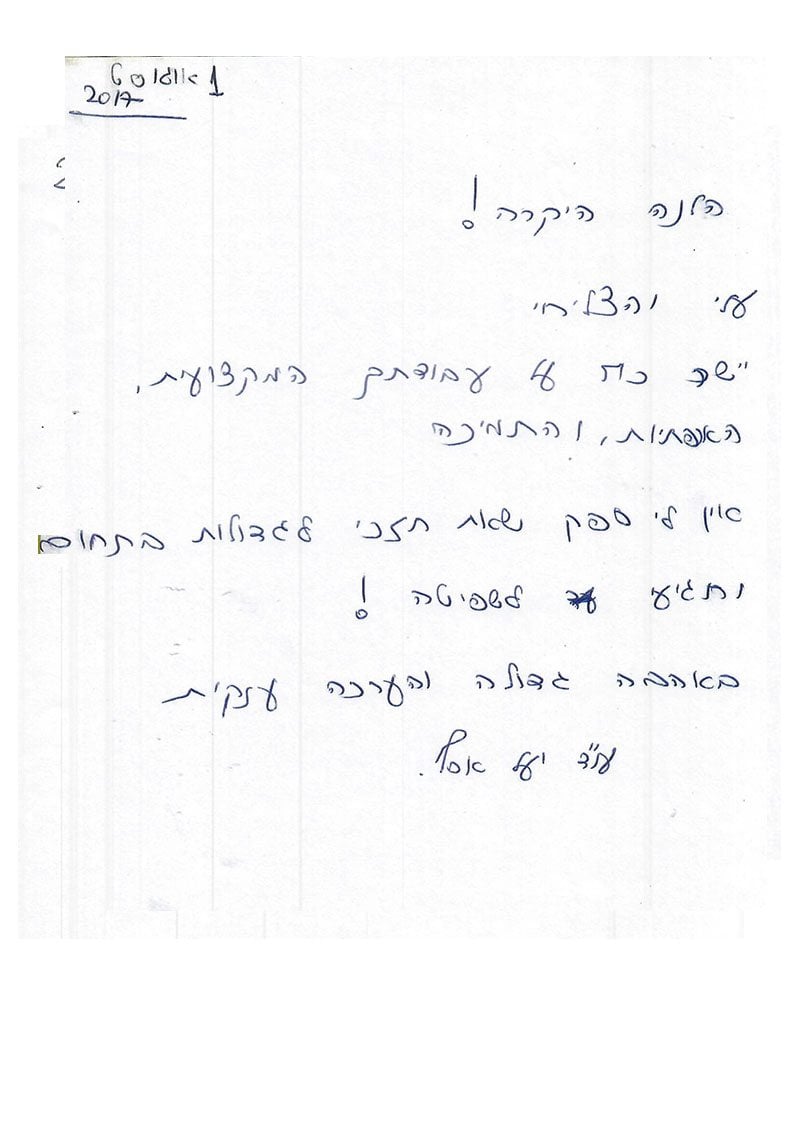 1 אוגוסט
2017
הלנה היקרה!
עלי והצליחי
יישר כח על עבודתך המקצועית,
האכפתיות, והתמיכה
אין לי ספק שאת תזכי לגדולות בתחום
ותגיעי לשפיטה!
באהבה גדולה והערכה ענקית
עו"ד יעל אסף.